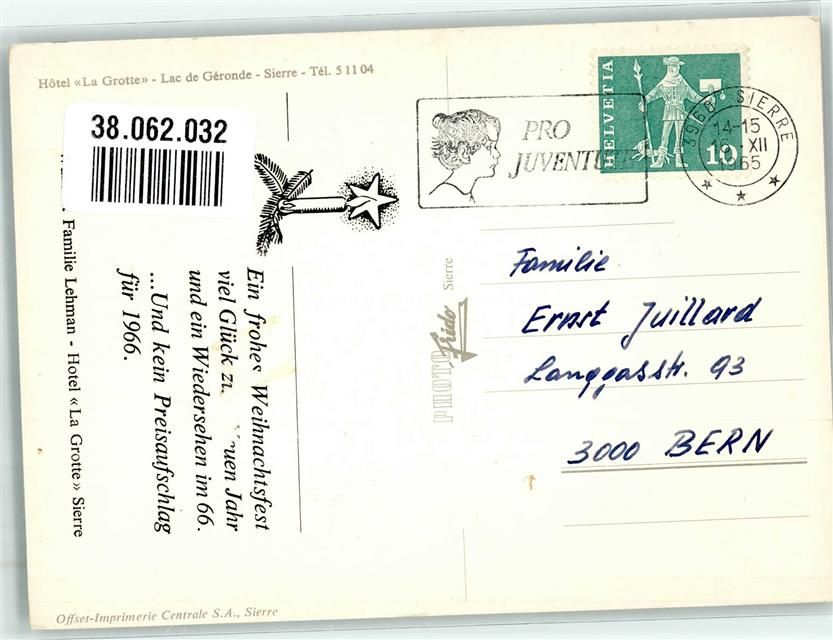 Hôtel «La Grotte» - Lac de Géronde - Sierre - Tél. 5 11 04
38.062.032
Ein frohes Weihnachtsfest
viel Glück zum neuen Jahr
und ein Wiedersehen im 66.
...Und kein Preisaufschlag
für 1966.
Familie Lehman - Hotel «La Grotte» Sierre
PRO
JUVENTUTE
HELVETIA
10
3968 SIERRE
14-15
XII
1965
PHOTO
Sierre
Familie
Ernst Juillard
Länggasstr. 93
3000 BERN
Offset-Imprimerie Centrale S.A., Sierre